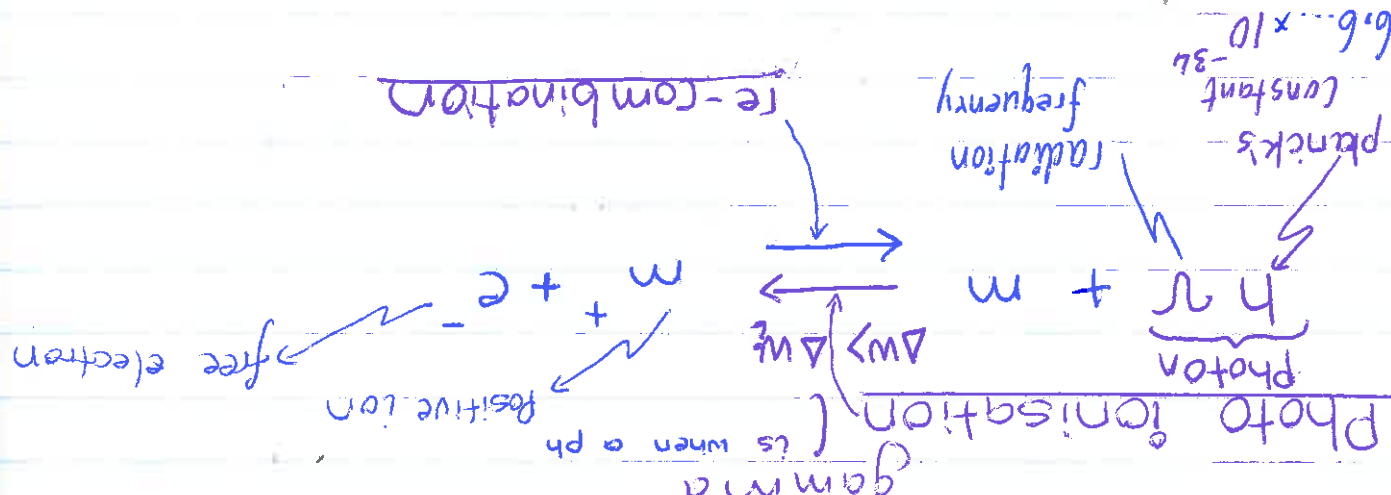 gamma
Photo ionisation (is when a ph
Photon
Positive ion
free electron
h ν + m ⇄ m⁺ + e⁻
planck's
constant
6,6... × 10⁻³⁴
radiation
frequency
re-combination